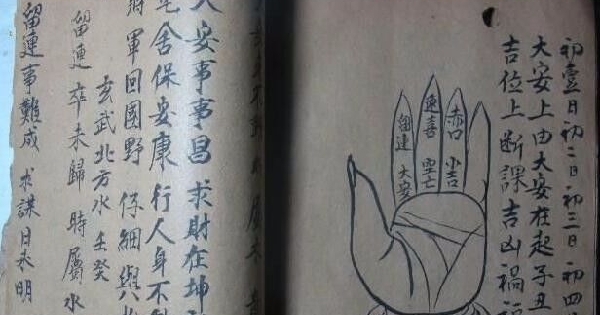 初壹日初二日初三日初四
大安上由大安在起子丑
吉位上断課吉凶禍福
赤口 小吉
速喜 空亡
留連 大安
大安事事昌 求財在坤
宅舍保安康 行人身不
將軍回園野 仔細與
玄武北方水 壬癸
留連 卒未歸 時屬水
留連事難成 求謀日未明